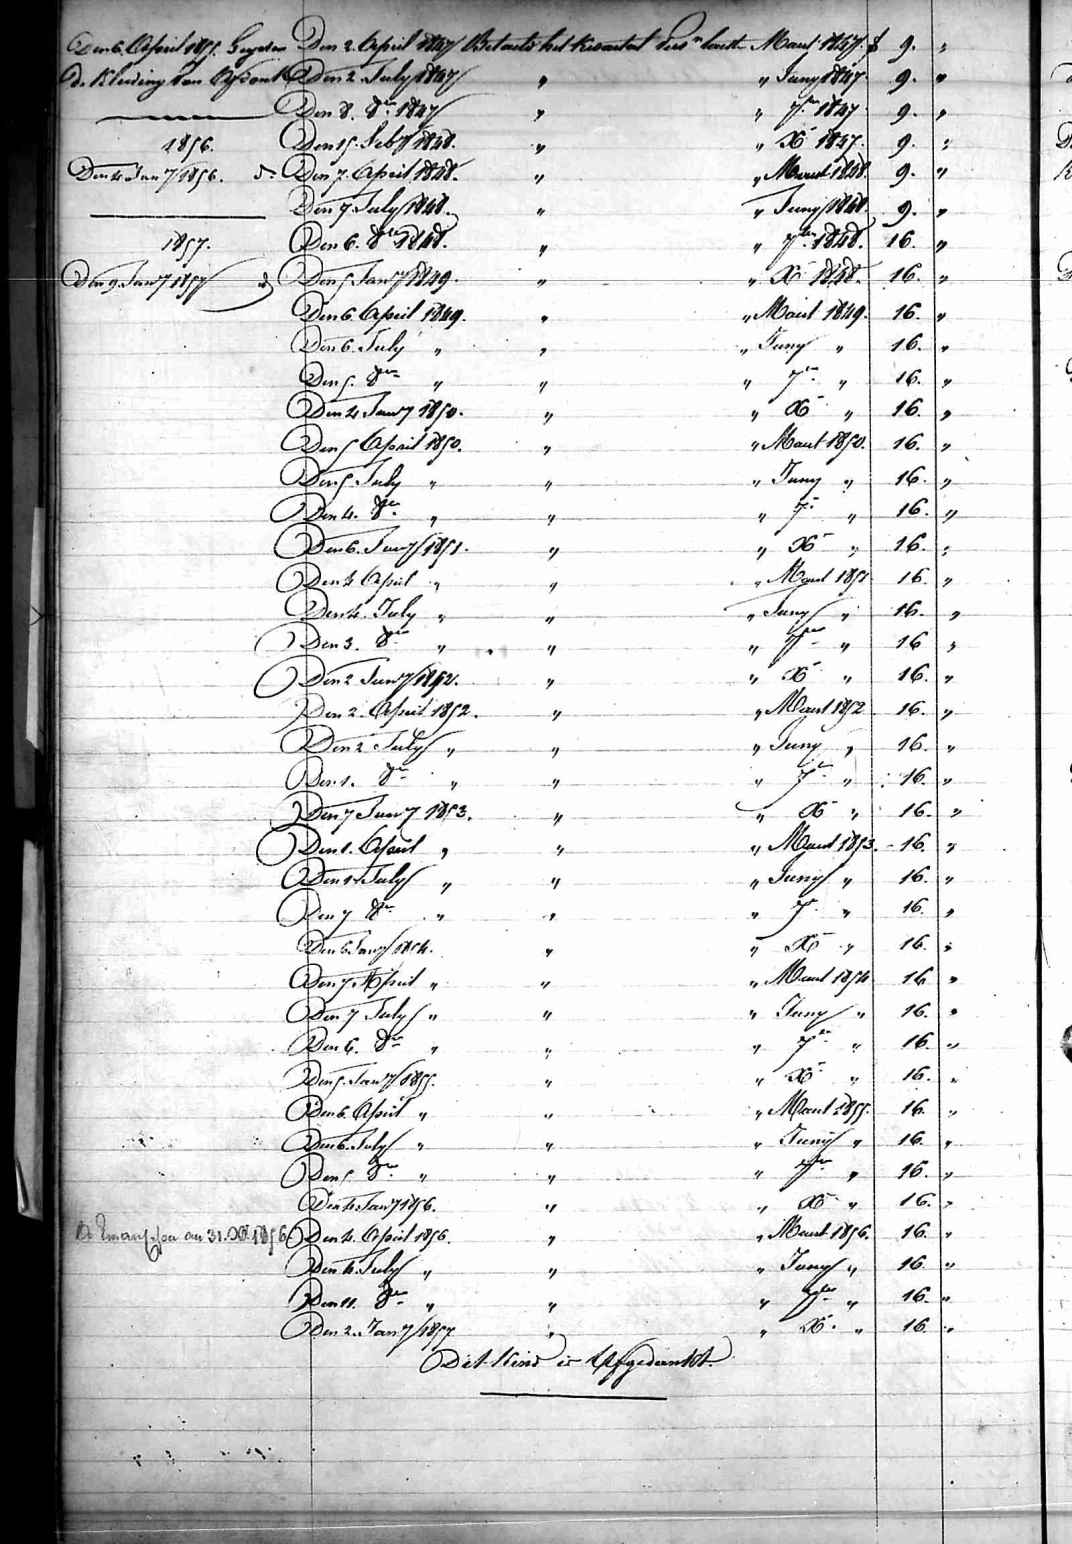 Den 6 April 1855. Den 2 April 1847 Betaald het Kwartaal Maart 1847. f 9. "
De Kleeding van Den 2 July 1847 " " Juny 1847. 9. "
Den 8. 8er 1847 " " 7er 1847 9. "
1856. Den 15. Feby 1848. " " Xr 1847. 9. "
Den 4 Jany 1856. do Den 7. April 1848. " " Maart 1848. 9. "
Den 7 July 1848. " " Juny 1848. 9. "
1857. Den 6. 8er 1848. " " 7er 1848. 16. "
Den 9 Jany 1857 do Den 5 Jany 1849. " " Xr 1848. 16. "
Den 6. April 1849. " " Maart 1849. 16. "
Den 6. July " " " Juny " 16. "
Den 5. 8er " " " 7er " 16. "
Den 4 Jany 1850. " " Xr " 16. "
Den 5 April 1850. " " Maart 1850. 16. "
Den 5 July " " " Juny " 16. "
Den 4. 8er " " " 7er " 16. "
Den 6. Jany 1851. " " Xr " 16. "
Den 4 April " " " Maart 1851 16. "
Den 4. July " " " Juny " 16. "
Den 3. 8er " " " 7er " 16 "
Den 2 Jany 1852. " " Xr " 16. "
Den 2. April 1852. " " Maart 1852 16. "
Den 2 July " " " Juny " 16. "
Den 1. 8er " " " 7er " 16. "
Den 7 Jany 1853. " " Xr " 16. "
Den 1. April " " " Maart 1853. 16. "
Den 1 July " " " Juny " 16. "
Den 7 8er " " " 7er " 16. "
Den 6 Jany 1854. " " Xr " 16. "
Den 7. April " " " Maart 1854 16 "
Den 7 July " " " Juny " 16. "
Den 6. 8er " " " 7er " 16. "
Den 5. Jany 1855. " " Xr " 16. "
Den 6. April " " " Maart 1855. 16. "
Den 6. July " " " Juny " 16. "
Den 5. 8er " " " 7er " 16. "
Den 4 Jany 1856. " " Xr " 16. "
an 31. Xr 1856. Den 4. April 1856. " " Maart 1856. 16. "
Den 4. July " " " Juny " 16. "
Den 11. 8er " " " 7er " 16. "
Den 2. Jany 1857 " " Xr " 16. "
Dit Kind is Afgedankt.